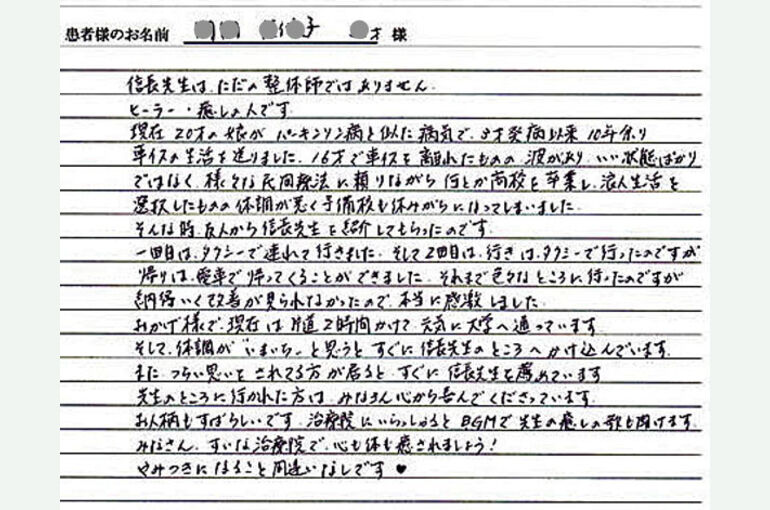 患者様のお名前 子 才 様
信長先生は、ただの整体師ではありません。
ヒーラー・癒しの人です。
現在20才の娘がパーキンソン病と似た病気で、9才発病以来10年余り
車イスの生活を送りました。16才で車イスを離れたものの、波があり、いい状態ばかり
ではなく、様々な民間療法に頼りながら何とか高校を卒業し、浪人生活を
選択したものの体調が悪く予備校も休みがちになってしまいました。
そんな時、友人から信長先生を紹介してもらったのです。
一回目は、タクシーで連れて行きました。そして2回目は、行きは、タクシーで行ったのですが
帰りは、電車で帰ってくることができました。それまで色々なところに行ったのですが
納得いく改善が見られなかったので、本当に感激しました。
おかげ様で、現在は片道2時間かけて、元気に大学へ通っています。
そして、体調が"いまいち"と思うとすぐに信長先生のところへかけ込んでいます。
また、つらい思いをされてる方が居ると、すぐに信長先生を薦めています
先生のところに行かれた方は、みなさん心から喜んでくださっています。
お人柄もすばらしいです。治療院にいらっしゃるとBGMで先生の癒しの歌も聞けます。
みなさん、すいな治療院で、心も体も癒されましょう!
やみつきになること間違いなしです♥